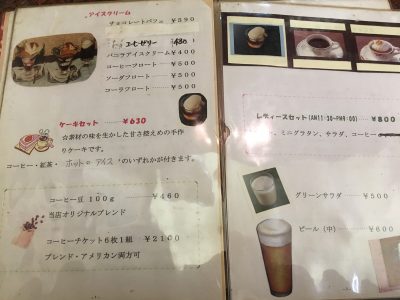 アイスクリーム
チョコレートパフェ ￥590
コーヒーゼリー 480
バニラアイスクリーム ￥400
コーヒーフロート ￥500
ソーダフロート ￥500
コーラフロート ￥500
ケーキセット ‥‥ ￥630
☆素材の味を生かした甘さ控えめの手作
りケーキです。
コーヒー・紅茶・ホット or アイス のいずれかが付きます。
コーヒー豆 100g ￥460
当店オリジナルブレンド
コーヒーチケット6枚1組 ￥2100
ブレンド・アメリカン両方可
レディースセット(AM11:30-PM9:00) ‥‥ ￥800
ミニグラタン、サラダ、コーヒー
グリーンサラダ ￥500
ビール (中) ￥600